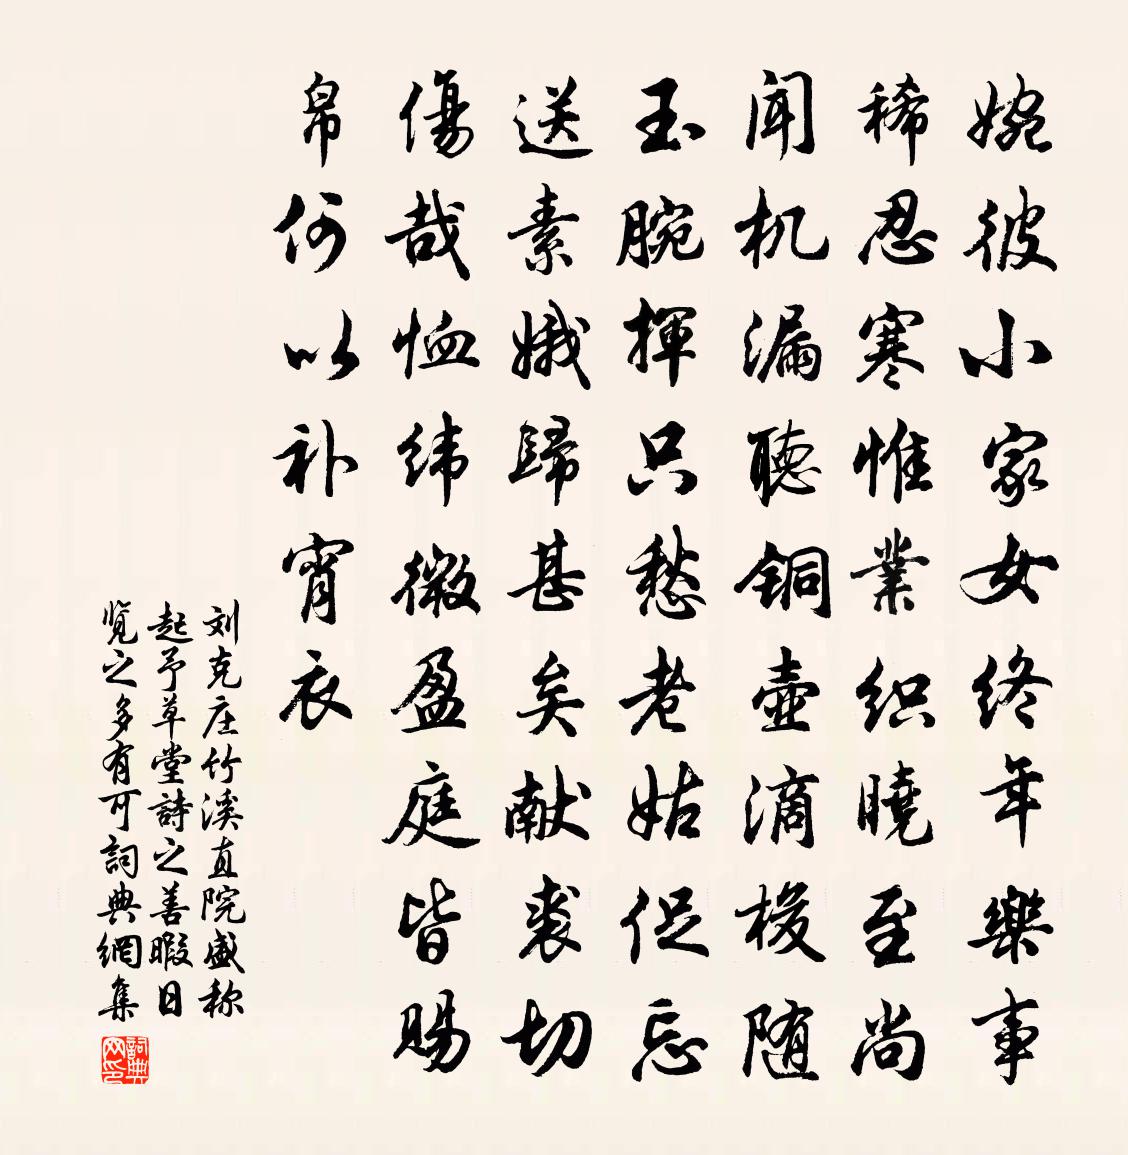 婉彼小家女终年樂事
稀忍寒惟業织曉至尚
闻机漏聴铜壶滴梭随
玉腕揮只愁老姑促忘
送素娥歸甚矣献裘切
傷哉恤纬微盈庭皆賜
帛何以补宵衣
刘克庄竹溪直院盛称
起予草堂詩之善暇日
览之多有可詞典網集
詞典网印